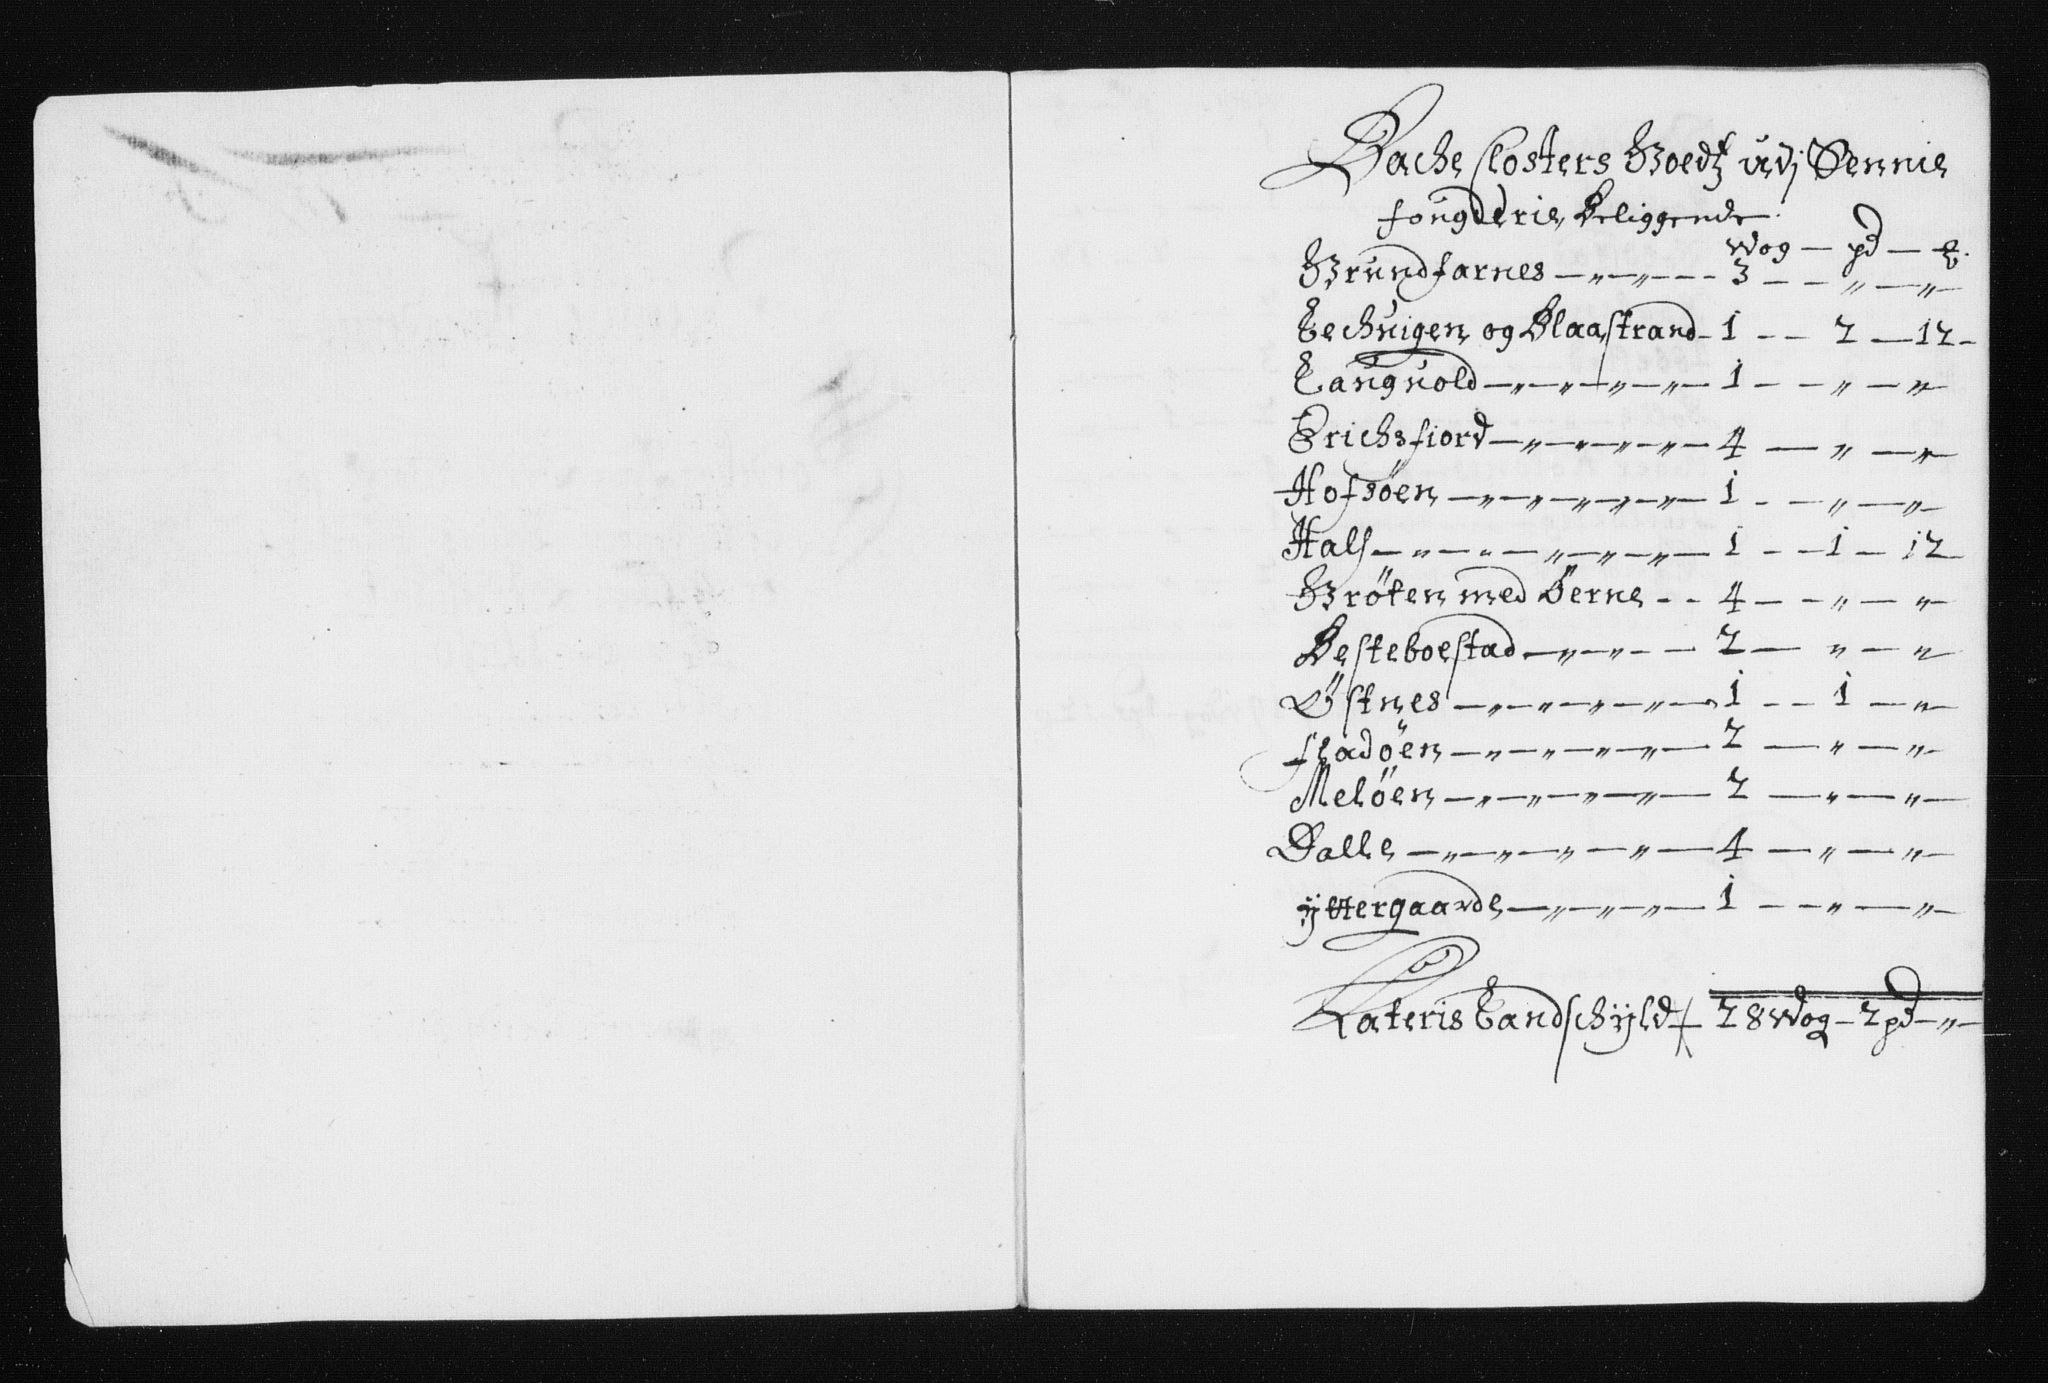 Bache Closters Goedtz udj Sennie
fougderie Beliggende.
Wog — pd — 
Grundfarnes — „ — „ — 3 — — „ — „ —
Lechuigen og Blaastrand — 1 — — 2 — 12 —
Languold — „ — „ — „ — „ — 1 — — „ — „ —
Erichsfiord — „ — „ — „ — „ — 4 — „ — „ —
Hofsöen — „ — „ — „ — „ — „ — 1 — — „ — „ —
Hals — „ — „ — „ — „ — „ — 1 — — 1 — 12 —
Gröten med Öerne — — 4 — — „ — „ —
Besteboestad — „ — „ — 2 — „ — „ —
Östnes — „ — „ — „ — „ — 1 — — 1 — „ —
fladöen — „ — „ — „ — „ — 2 — „ — „ —
Melöen — „ — „ — „ — „ — 2 — „ — „ —
Dalle — „ — „ — „ — „ — 4 — „ — „ —
ÿttergaarde — „ — „ — „ — 1 — — „ — „ —
Lateris Landschÿld — 28 Wog — 2 pd — „ —